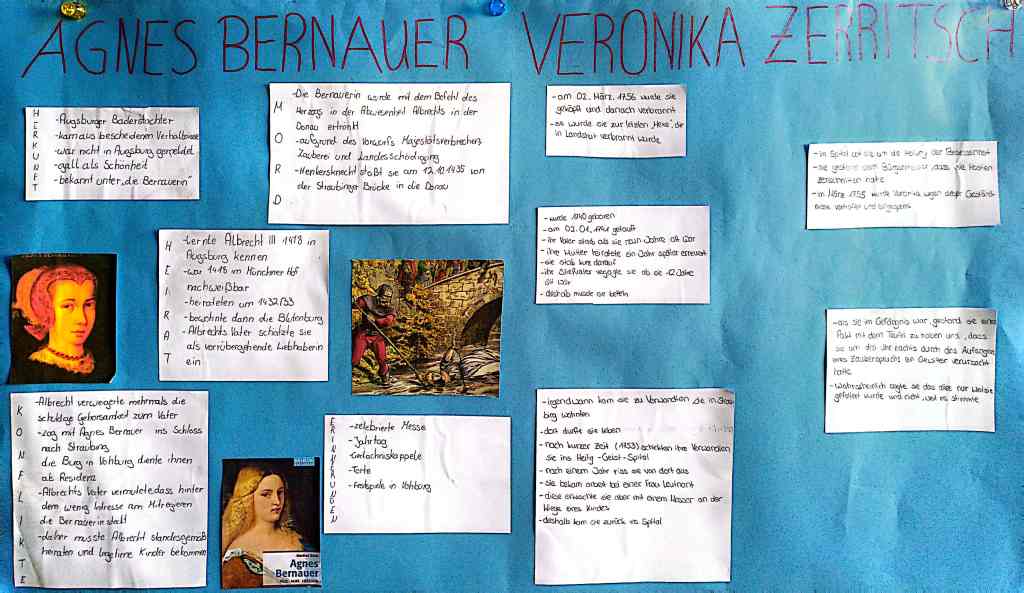 AGNES BERNAUER
HERKUNFT
-Augsburger Baderstochter
-kam aus bescheidenen Verhältnisse
-war nicht in Augsburg gemeldet
-galt als Schönheit
-bekannt unter „die Bernauerin"
MORD
-Die Bernauerin wurde mit dem Befehl des
Herzogs in der Abwesenheit Albrechts in der
Donau ertränkt
-aufgrund des Vorwurfs Majestätsverbrechen,
Zauberei und Landesschädigung
-Henkersknecht stößt sie am 12.10.1435 von
der Straubinger Brücke in die Donau
HEIRAT
-Lernte Albrecht III 1428 in
Augsburg kennen
-war 1428 im Münchner Hof
nachweißbar
-heirateten um 1432/33
-bewohnte dann die Blutenburg
-Albrechts Vater schätzte sie
als vorrübergehende Liebhaberin
ein
KONFLIKTE
-Albrecht verweigerte mehrmals die
schuldige Gehorsamkeit zum Vater
-zog mit Agnes Bernauer ins Schloss
nach Straubing
die Burg in Vohburg diente ihnen
als Residenz
-Albrechts Vater vermutete, dass hinter
dem wenig Intresse am Mitregieren
die Bernauerin steckt
-daher musste Albrecht standesgemäß
heiraten und legitime Kinder bekommen
Agnes
Bernauer
ERINNERUNGEN
-zelebrierte Messe
-Jahrtag
-Gedächniskappele
-Torte
-Festspiele in Vohburg
VERONIKA ZERRITSCH
-am 02. März. 1756 wurde sie
geköpft und danach verbrannt
-so wurde sie zur letzten „Hexe", die
in Landshut verbrannt wurde
-wurde 1740 geboren
-am getauft
-ihr Vater starb als sie Jahre alt war
-ihre Mutter heiratete ein Jahr später erneuert
-sie starb kurz darauf
-ihr Stiefvater verjagte sie als sie 12 Jahre
alt war
-deshalb musste sie betteln
-irgendwann kam sie zu Verwandten die in Strau-
bing wohnten
-dort durfte sie leben
-nach kurzer Zeit (1753) schickten ihre Verwandten
sie ins Heilig-Geist-Spital
-nach einem Jahr riss sie von dort aus
-sie bekam arbeit bei einer Frau Leutnant
-diese erwischte sie aber mit einem Messer an der
Wiege eines Kindes
-deshalb kam sie zurück ins Spital
-im Spital
-sie gestand dem Bürgermeister, dass sie Hostien
zerschnitten hatte
-im März 1755 wurde Veronika wegen dieser Geständ-
nisse verhaftet und
-als sie im Gefängnis war, gestand sie einen
Pakt mit dem Teufel zu haben und, dass
sie um die nachts durch das Aufsagen
eines Zauberspruchs verursacht
hatte
-Wahrscheinlich sagte sie das alles nur weil sie
gefoltert wurde und nicht, weil es stimmte